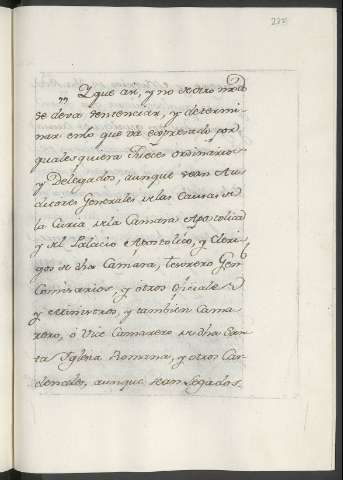 Y que asi, y no de otro modo
se deva sentenciar, y determi-
nar en lo que va expresado por
qualesquiera Jueces ordinarios
y Delegados, aunque sean Au-
ditores Generales de las Causas de
la Curia de la Camara Apostolica
y del Palacio Apostolico, y Cleri-
gos de dha Camara, Tesorero Gen
Comisarios, y otros oficiales
y Ministros, y tambien Cama-
rero, ó Vice Camarero de dha San-
ta Iglesia Romana, y otros Car-
denales, aunque sean Legados.